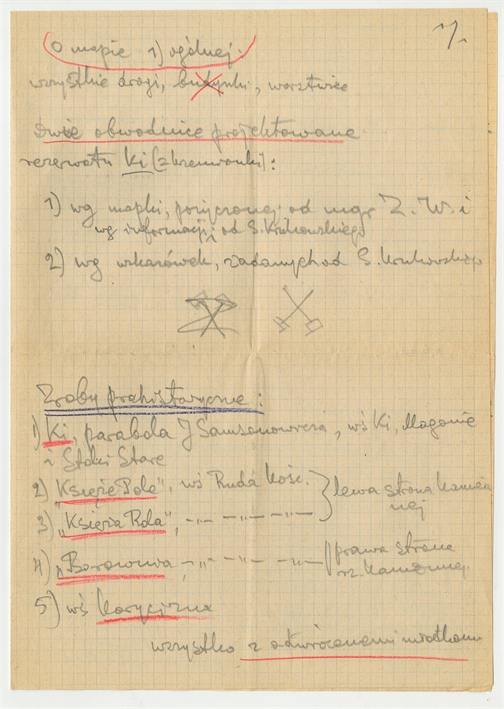 1/.
O mapie 1) ogólnej:
wszystkie drogi, budynki, warstwice
Dwie obwodnice projektowane
rezerwatu Ki (z krzemionki):
1) wg mapki, pożyczonej od mgr Z. W. i
wg informacji od S. Krukowskiego
2) wg wskazówek, zadanych od S. Krukowskiego
Zroby prehistoryczne:
1) Ki, parabola J Samsonowicza, wś Ki, Magonie
i Stoki Stare
2) "Księże Pole", wś Ruda Kośc.
3) "Księża Rola", -"- — -"-
lewa strona Kamiennej
4) "Borownia", -"- — -"-
prawa strona
rz. Kamiennej
5) wś Korycizna
wszystko z odwróconemi młotkami